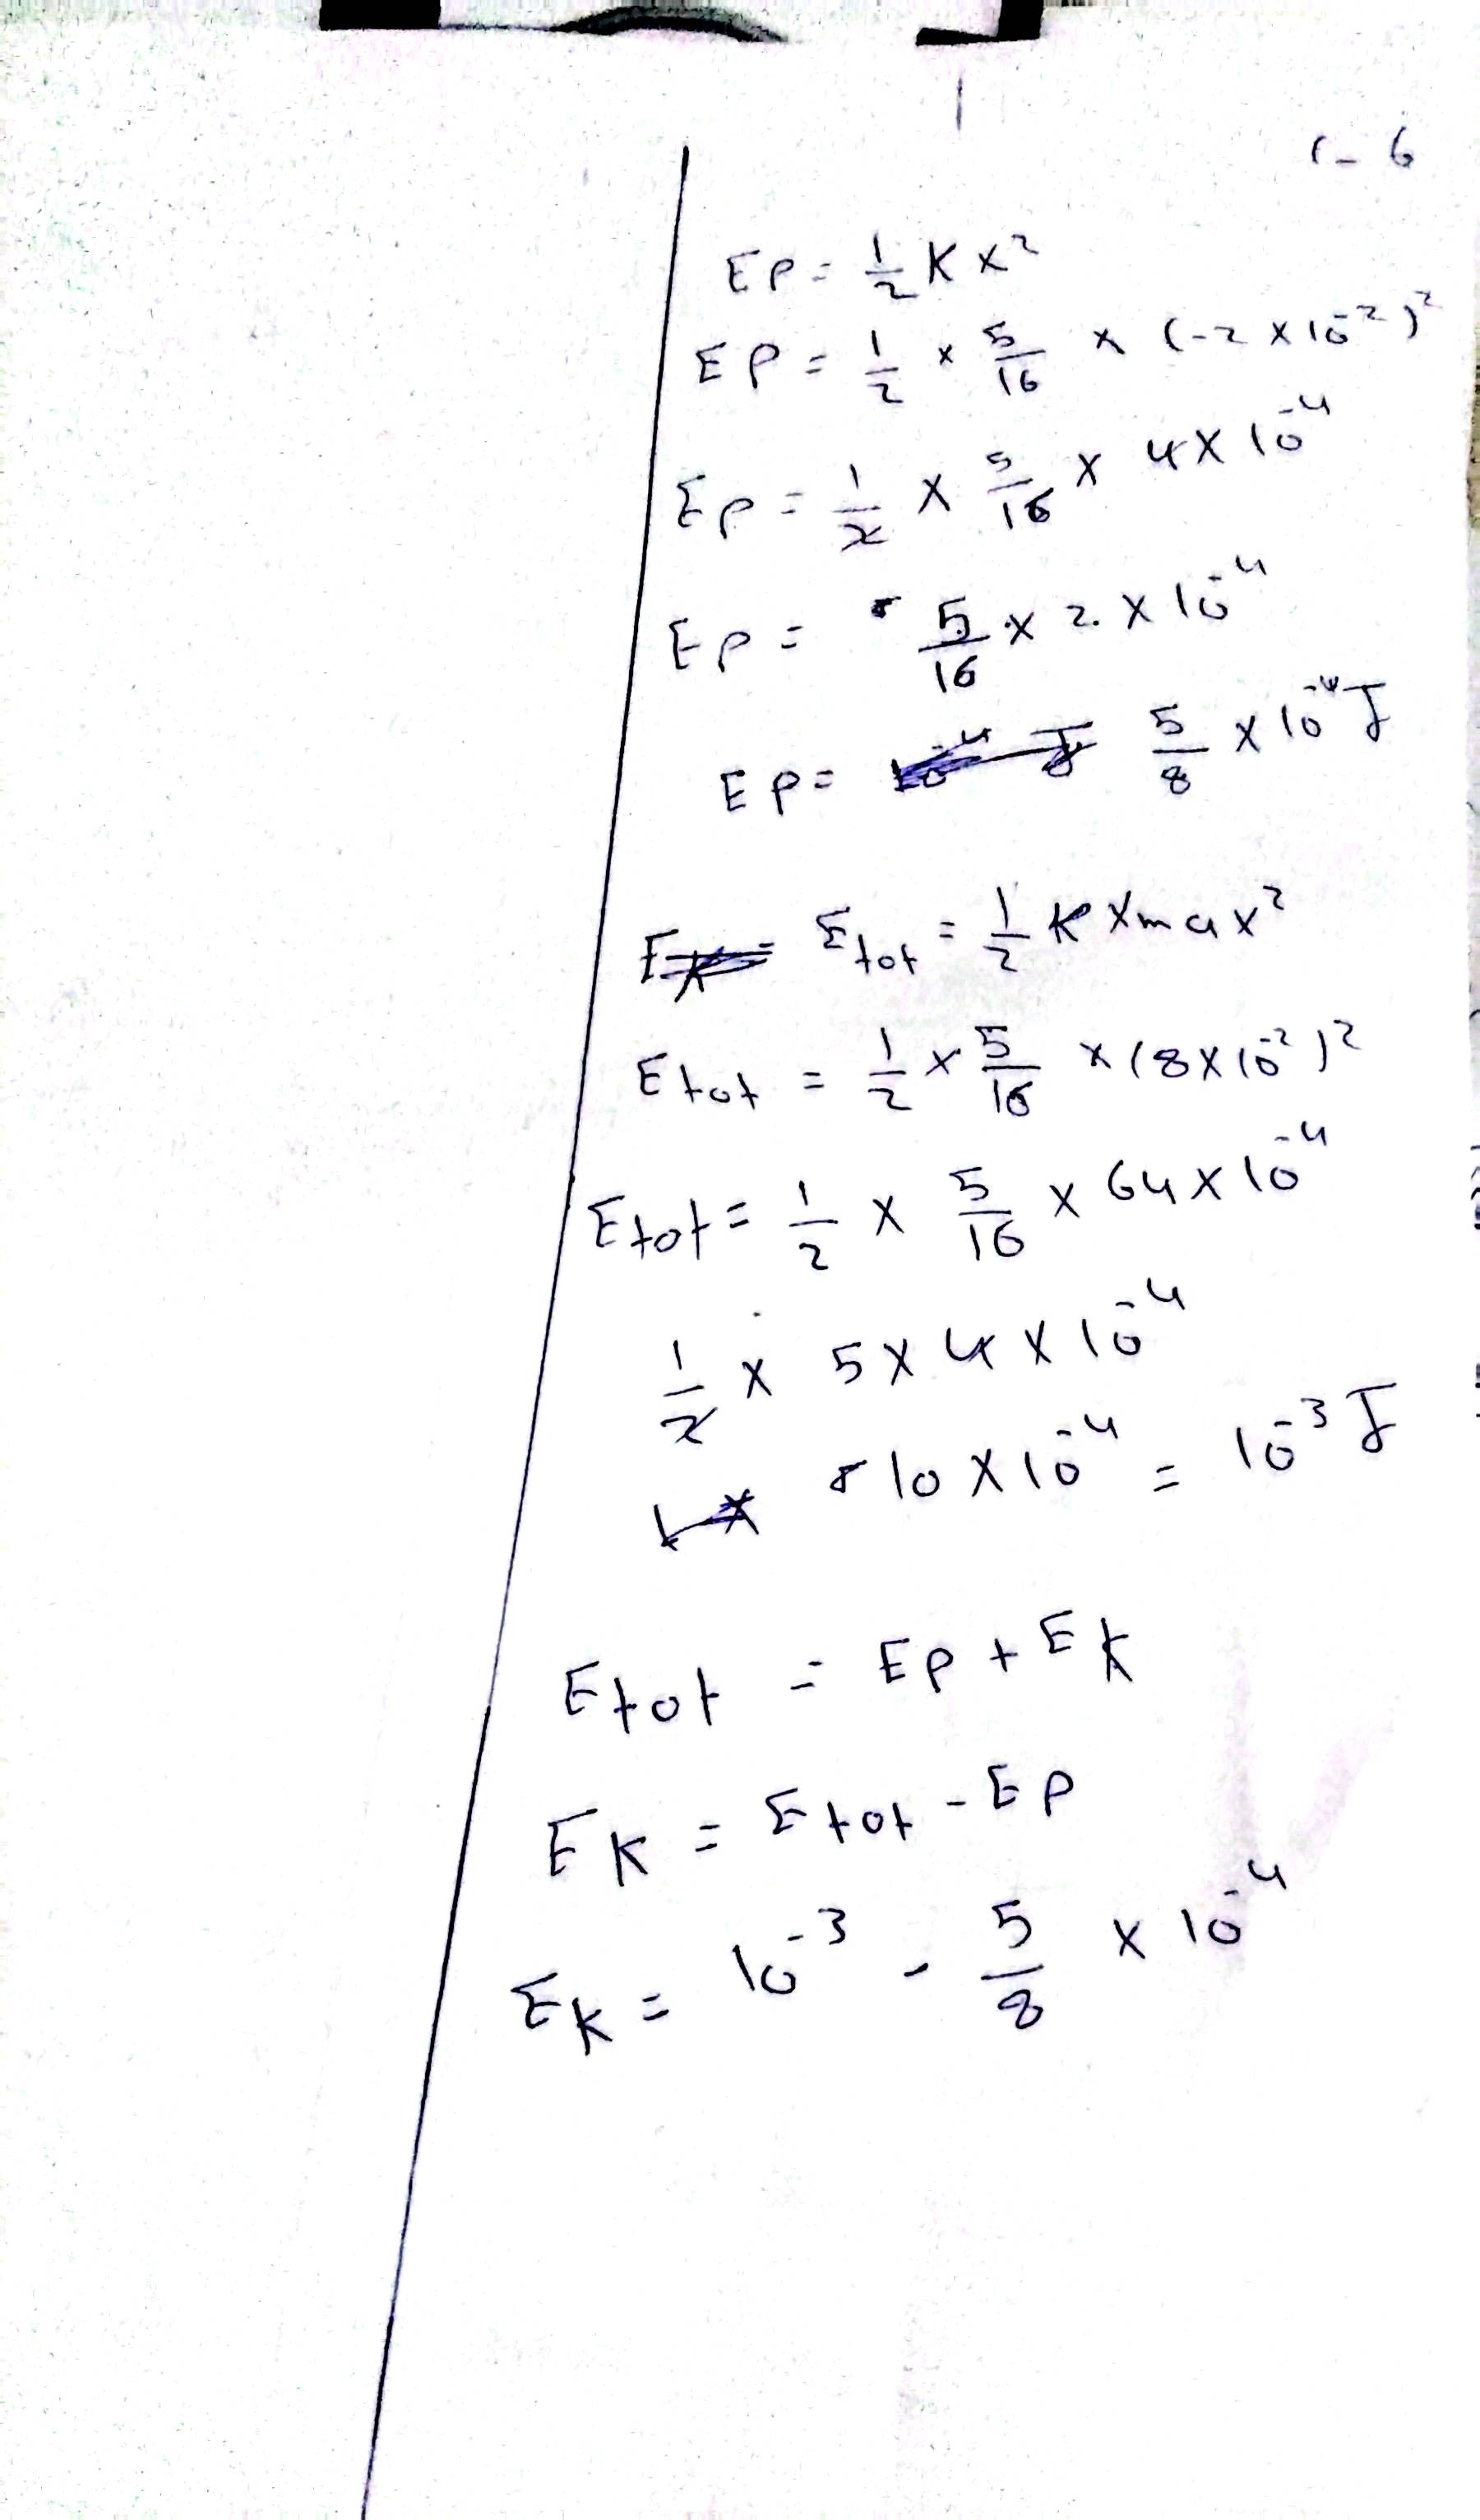 1-6
EP = 1/2 K x²
EP = 1/2 × 5/16 × (-2 × 10⁻²)²
EP = 1/2 × 5/16 × 4 × 10⁻⁴
EP = 5/16 × 2 × 10⁻⁴
EP = 5/8 × 10⁻⁴ J
Etot = 1/2 K Xmax²
Etot = 1/2 × 5/16 × (8 × 10⁻²)²
Etot = 1/2 × 5/16 × 64 × 10⁻⁴
1/2 × 5 × 4 × 10⁻⁴
10 × 10⁻⁴ = 10⁻³ J
Etot = EP + EK
EK = Etot - EP
EK = 10⁻³ - 5/8 × 10⁻⁴